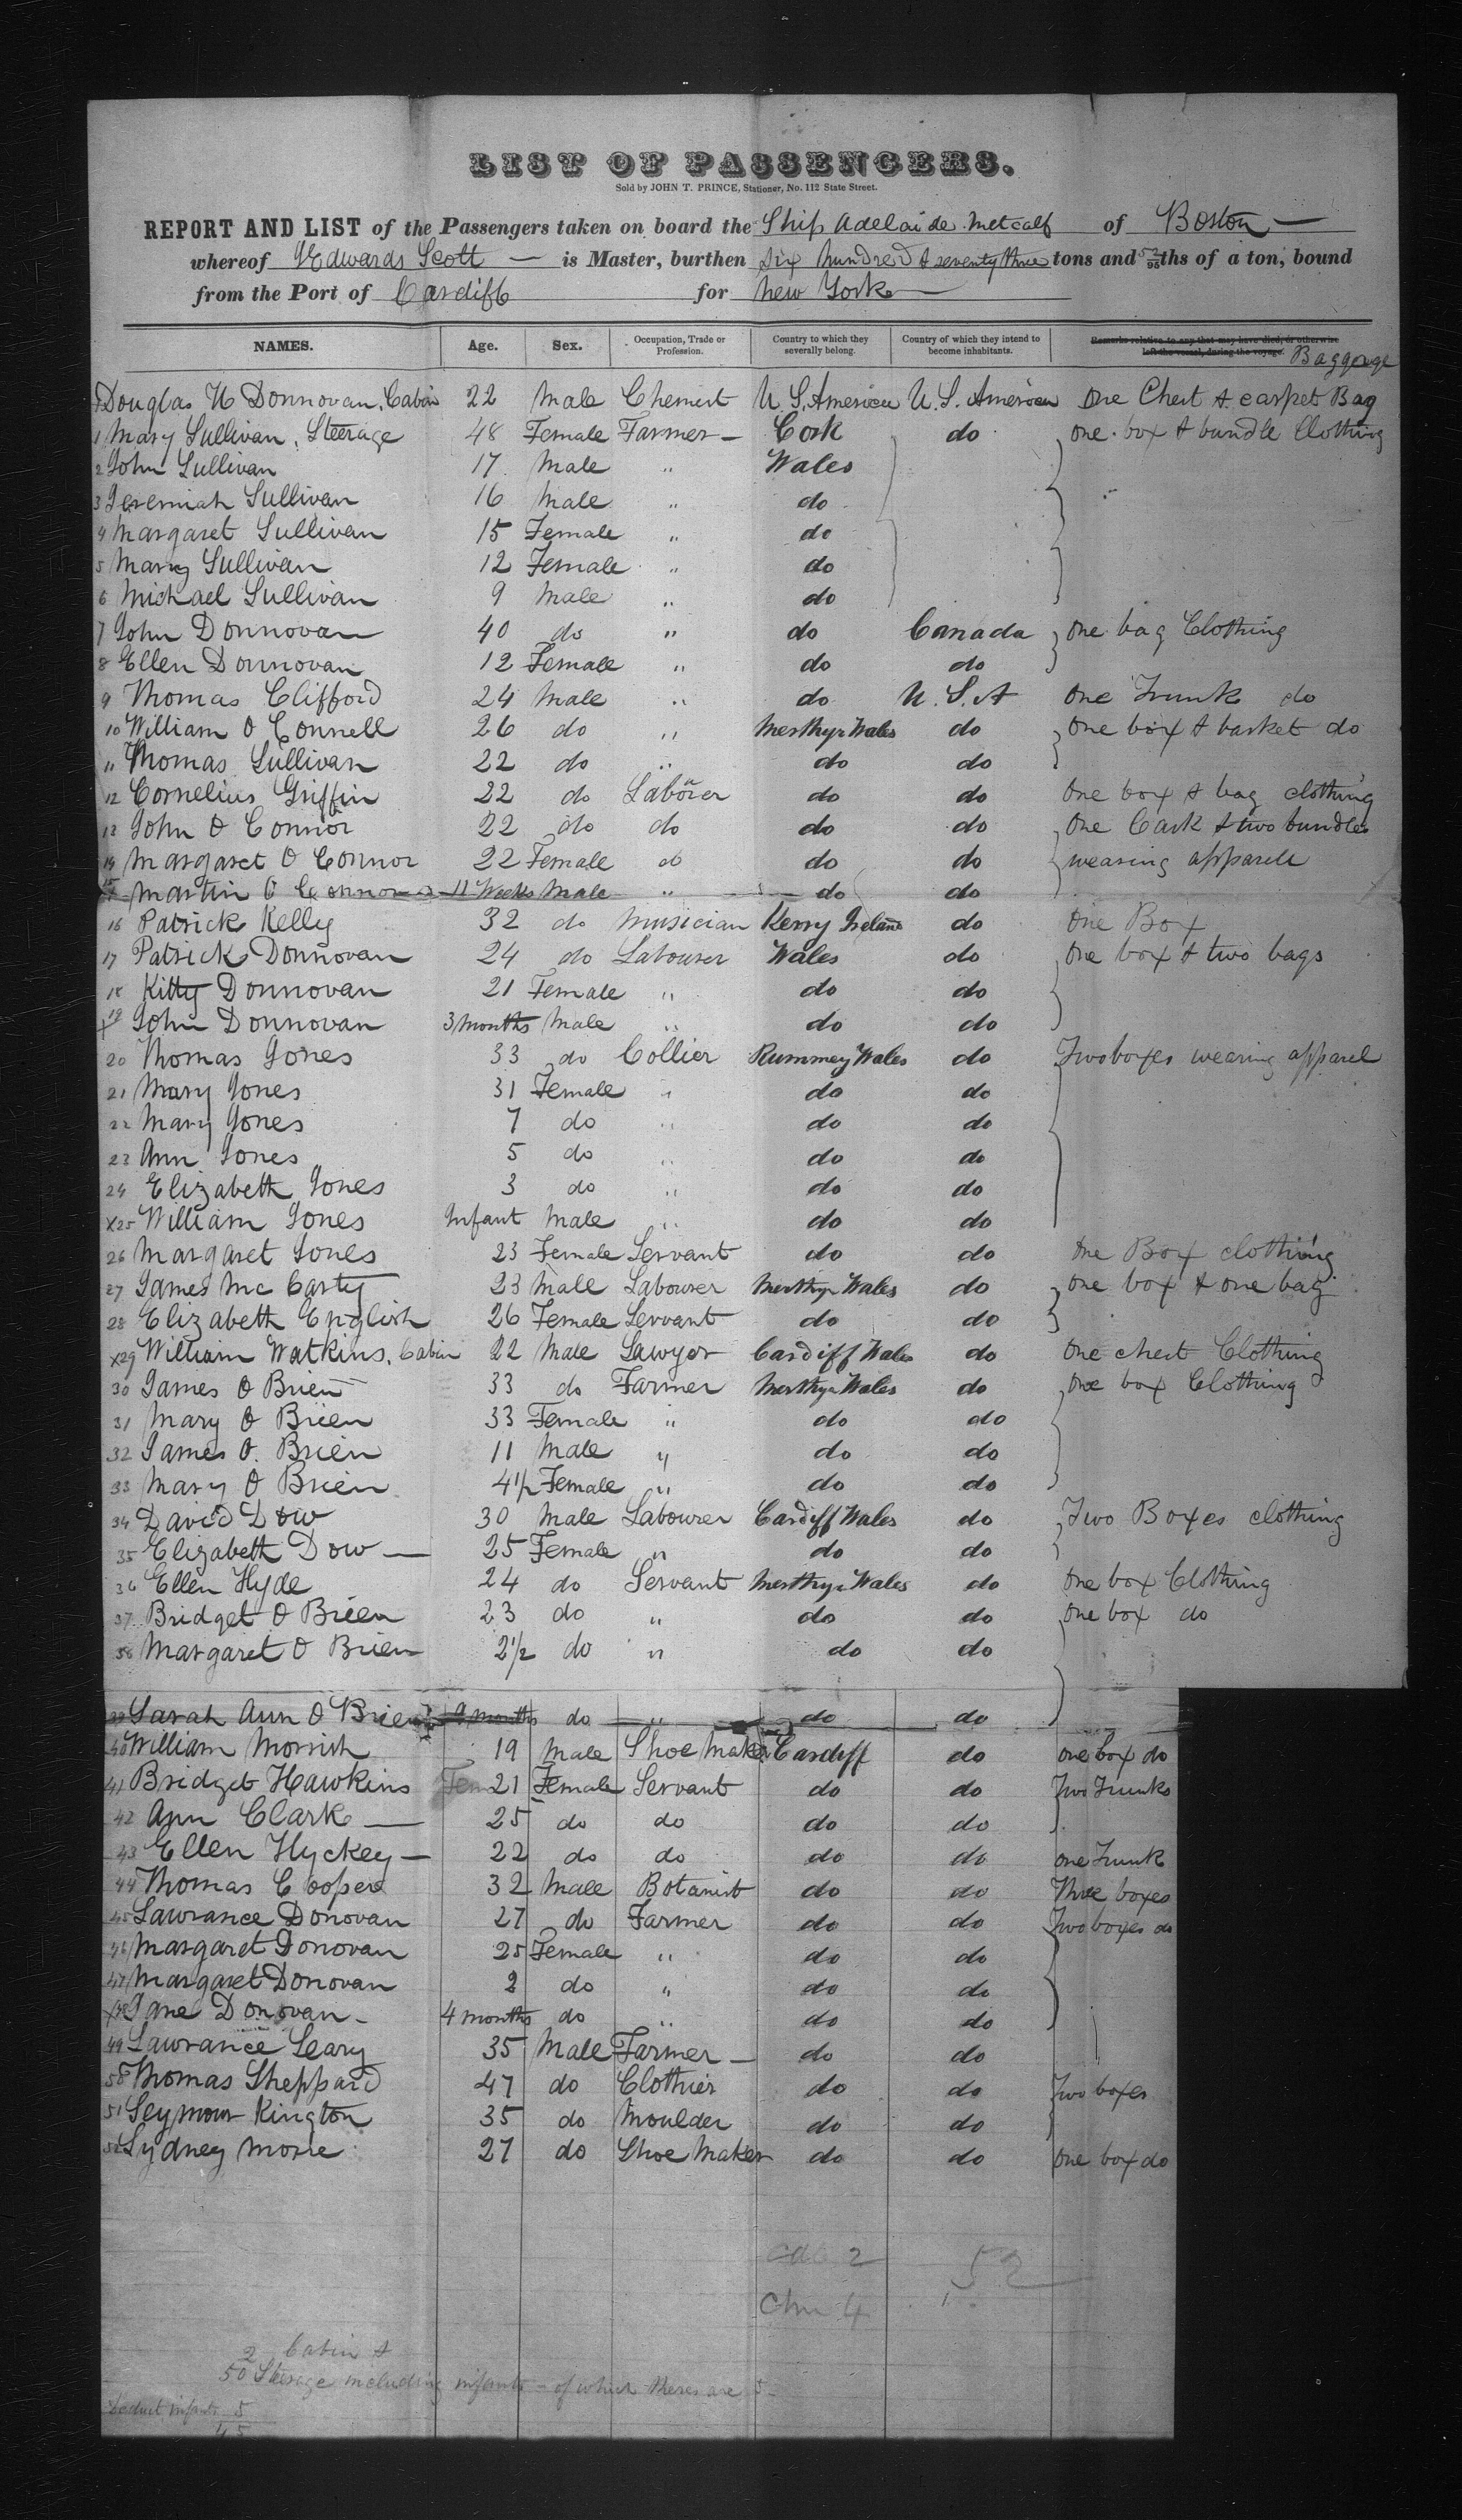 LIST OF PASSENGERS.
Sold by JOHN T. PRINCE, Stationer, No. 112 State Street.
REPORT AND LIST of the Passengers taken on board the Ship Adelaide Metcalf of Boston —
whereof Edwards Scott — is Master, burthen six hundred & seventy three tons and 52/95ths of a ton, bound
from the Port of Cardiff for New York —
NAMES. Age. Sex. Occupation, Trade or Profession. Country to which they severally belong. Country of which they intend to become inhabitants. Remarks relative to any that may have died, or otherwise left the vessel, during the voyage. Baggage
Douglas H Donnovan, Cabin 22 Male Chemist U. S. America U. S. America One Chest & carpet Bag
1 Mary Sullivan, Steerage 48 Female Farmer — Cork do one box & bundle Clothing
2 John Sullivan 17 Male " Wales
3 Jeremiah Sullivan 16 Male " do
4 Margaret Sullivan 15 Female " do
5 Mary Sullivan 12 Female " do
6 Michael Sullivan 9 Male " do
7 John Donnovan 40 do " do Canada one bag Clothing
8 Ellen Donnovan 12 Female " do do
9 Thomas Clifford 24 Male " do U. S. A One Trunk do
10 William O Connell 26 do " Merthyr Wales do One box & basket do
" Thomas Sullivan 22 do " do do
12 Cornelius Griffin 22 do Laborer do do One box & bag clothing
13 John O Connor 22 do do do do One Cask & two bundles
14 Margaret O Connor 22 Female do do do wearing apparell
15 Martin O Connor 11 Weeks Male " do do
16 Patrick Kelly 32 do Musician Kerry Ireland do One Box
17 Patrick Donnovan 24 do Labourer Wales do One box & two bags
18 Kitty Donnovan 21 Female " do do
x19 John Donnovan 3 months Male " do do
20 Thomas Jones 33 do Collier Rummey Wales do Two boxes wearing apparel
21 Mary Jones 31 Female " do do
22 Mary Jones 7 do " do do
23 Ann Jones 5 do " do do
24 Elizabeth Jones 3 do " do do
x25 William Jones Infant Male " do do
26 Margaret Jones 23 Female Servant do do One Box clothing
27 James Mc Carty 23 Male Labourer Merthyr Wales do one box & one bag
28 Elizabeth English 26 Female Servant do do
x29 William Watkins, Cabin 22 Male Lawyer Cardiff Wales do One chest Clothing
30 James O Brien 33 do Farmer Merthyr Wales do One box Clothing
31 Mary O Brien 33 Female " do do
32 James O. Brien 11 Male " do do
33 Mary O Brien 4 1/2 Female " do do
34 David Dow 30 Male Labourer Cardiff Wales do Two Boxes clothing
35 Elizabeth Dow — 25 Female " do do
36 Ellen Hyde 24 do Servant Merthyr Wales do One box Clothing
37 Bridget O Brien 23 do " do do One box do
38 Margaret O Brien 2 1/2 do " do do
39 Sarah Ann O Brien 9 months do " do do
40 William Morrish 19 Male Shoe Maker Cardiff do one box do
41 Bridget Hawkins 21 Female Servant do do Two Trunks
42 Ann Clark — 25 do do do do
43 Ellen Hyckey — 22 do do do do one Trunk
44 Thomas Cooper 32 Male Botanist do do Three boxes
45 Lawrance Donovan 27 do Farmer do do Two boxes do
46 Margaret Donovan 25 Female " do do
47 Margaret Donovan 2 do " do do
x48 Jane Donovan - 4 months do " do do
49 Lawrance Leary 35 Male Farmer — do do
50 Thomas Sheppard 47 do Clothier do do Two boxes
51 Seymour Kington 35 do Moulder do do
52 Sydney Morse 27 do Shoe Maker do do One box do
Cab 2 52
Chn 4
2 Cabin &
50 Steerage including infants - of which theres are 5
Deduct infants 5
45